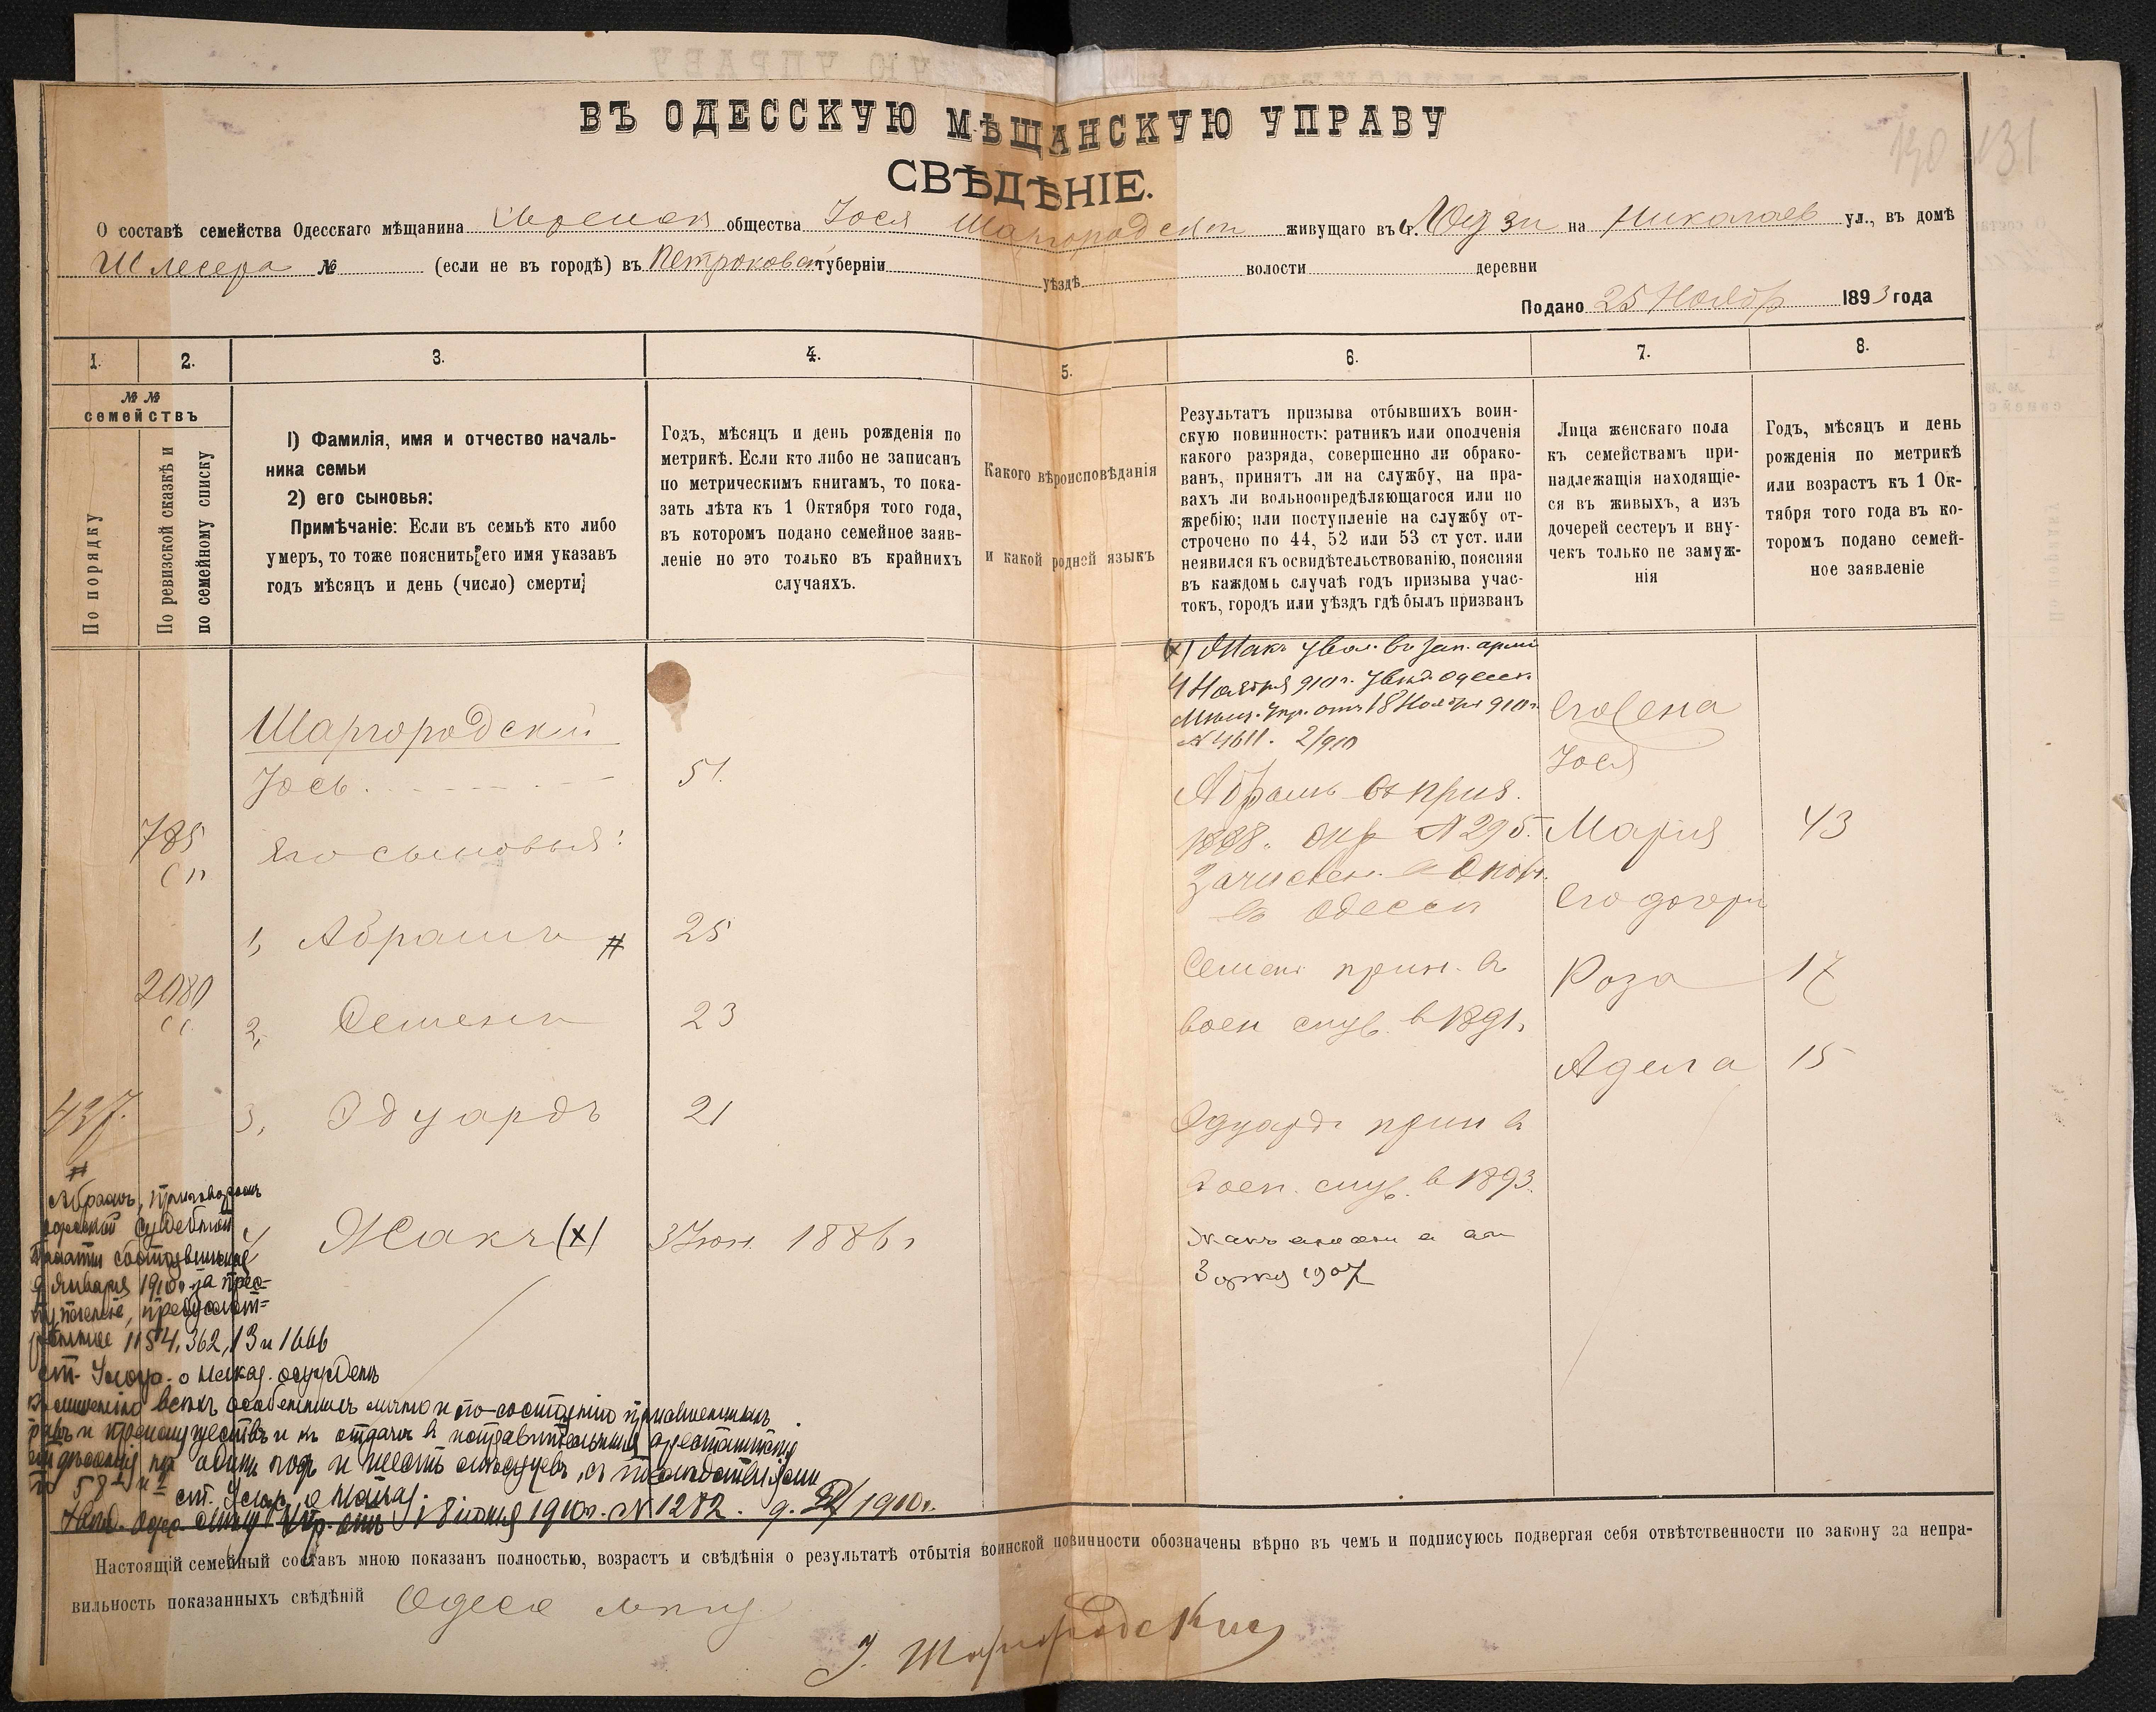 ВЪ ОДЕССКУЮ МѢЩАНСКУЮ УПРАВУ
СВѢДѢНІЕ.
130 131
О составѣ семейства Одесскаго мѣщанина общества Іося Шаргородскаго живущаго въ г. Лодзи на Николаев ул., въ домѣ
Шлесера № (если не въ городѣ) въ Петроковск губерніи уѣздѣ волости деревни
Подано 25 Ноябр 1893 года
1. 2. 3. 4. 5. 6. 7. 8.
№ № семействъ
По порядку
По ревизской сказкѣ и
по семейному списку
1) Фамилія, имя и отчество началь-
ника семьи
2) его сыновья:
Примѣчаніе: Если въ семьѣ кто либо
умеръ, то тоже пояснить его имя указавъ
годъ мѣсяцъ и день (число) смерти
Годъ, мѣсяцъ и день рожденія по
метрикѣ. Если кто либо не записанъ
по метрическимъ книгамъ, то пока-
зать лѣта къ 1 Октября того года,
въ которомъ подано семейное заяв-
леніе но это только въ крайнихъ
случаяхъ.
Какого вѣроисповѣданія
и какой родней языкъ
Результатъ призыва отбывшихъ воин-
скую повинность: ратникъ или ополченія
какого разряда, совершенно ли обрако-
ванъ, принятъ ли на службу, на пра-
вахъ ли вольноопредѣляющагося или по
жребію; или поступленіе на службу от-
строчено по 44, 52 или 53 ст уст. или
неявился къ освидѣтельствованію, поясняя
въ каждомъ случаѣ годъ призыва учас-
токъ, городъ или уѣздъ гдѣ былъ призванъ
Лица женскаго пола
къ семействамъ при-
надлежащія находящіе-
ся въ живыхъ, а изъ
дочерей сестеръ и вну-
чекъ только не замуж-
нія
Годъ, мѣсяцъ и день
рожденія по метрикѣ
или возрастъ къ 1 Ок-
тября того года въ ко-
торомъ подано семей-
ное заявленіе
(х) Жакъ увол. въ зап. арміи
4 Ноября 910 г. увѣд. Одесск.
Мѣщ. Упр. отъ 18 Ноября 910 г.
№ 4611. 2/910
Шаргородскій
Іось 51.
785
Его сыновья:
1, Абрамъ # 25
2080
2, Семенъ 23
437.
3, Эдуардъ 21
4, Жакъ (х) 3 Іюн. 1886 г
Абрамъ въ приз.
1888. № 295.
Зачислен. в Опол.
въ Одессы
Семенъ прин. въ
воен служ. в 1891.
Эдуардъ прин въ
воен. служ. в 1893.
Жакъ
1907
Его жена
Іося
Марія 43
Его дочери
Роза 17
Адела 15
#
Абрамъ, приговоромъ
Судебной
Палаты состоявшимся
9 Января 1910 г. за прес-
тупленіе, предусмот-
рѣнное 1154, 362, 13 и 1666
ст. Улож. о наказ. осужденъ
къ лишенію всѣхъ особенныхъ лично и по состоянію присвоенныхъ
правъ и преимуществъ и къ отдачѣ въ исправительныя арестантскія
отдѣленія на одинъ годъ и шесть мѣсяцевъ, съ послѣдствіями
по 58
ст. Улож. о наказ.
Увѣд. Одес. Мѣщ. Упр. отъ 18 іюня 1910 г. № 1282. 1910 г.
Настоящій семейный составъ мною показанъ полностью, возрастъ и свѣдѣнія о результатѣ отбытія воинской повинности обозначены вѣрно въ чемъ и подписуюсь подвергая себя отвѣтственности по закону за непра-
вильность показанныхъ свѣдѣній Одесс мѣщ
І. Шаргородскій